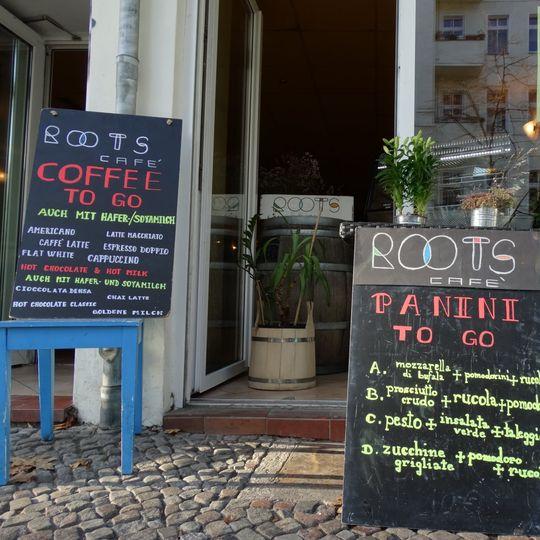 ROOTS
CAFÉ
COFFEE
TO GO
AUCH MIT HAFER-/SOYAMILCH
AMERICANO LATTE MACCHIATO
CAFFÈ LATTE ESPRESSO DOPPIO
FLAT WHITE CAPPUCCINO
HOT CHOCOLATE & HOT MILK
AUCH MIT HAFER- UND SOYAMILCH
CIOCCOLATA DENSA CHAI LATTE
HOT CHOCOLATE CLASSIC
GOLDENE MILCH
ROOTS
ROOTS
CAFÉ
PANINI
TO GO
A. mozzarella di bufala + pomodorini + ruco
B. prosciutto crudo + rucola + pomodo
C. pesto + insalata verde + taleggi
D. zucchine grigliate + pomodoro + ruco